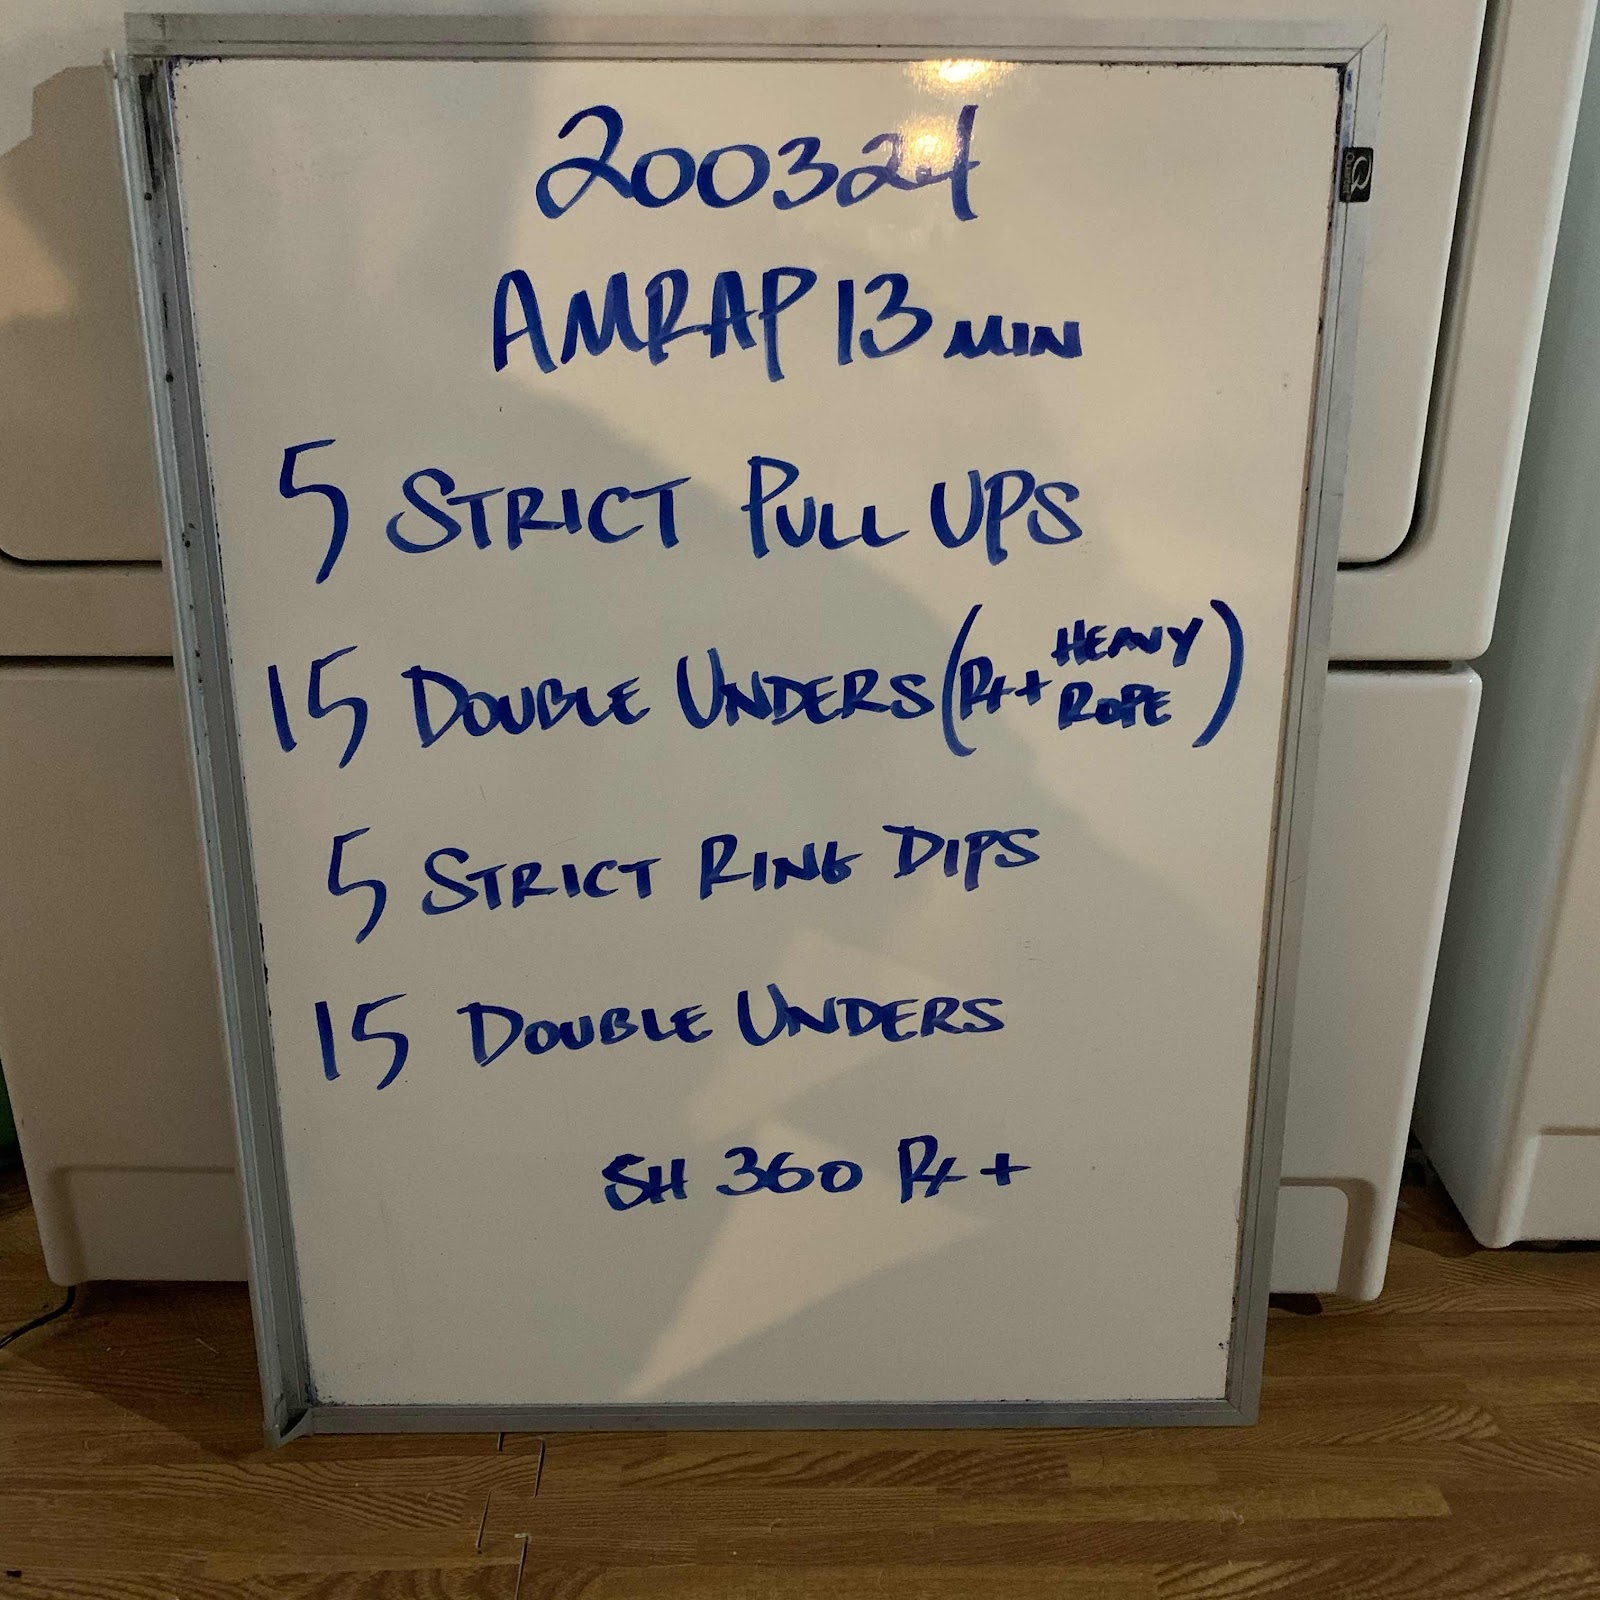 200324
AMRAP 13 MIN
5 STRICT PULL UPS
15 DOUBLE UNDERS (Rx+ HEAVY ROPE)
5 STRICT RING DIPS
15 DOUBLE UNDERS
SH 360 Rx+